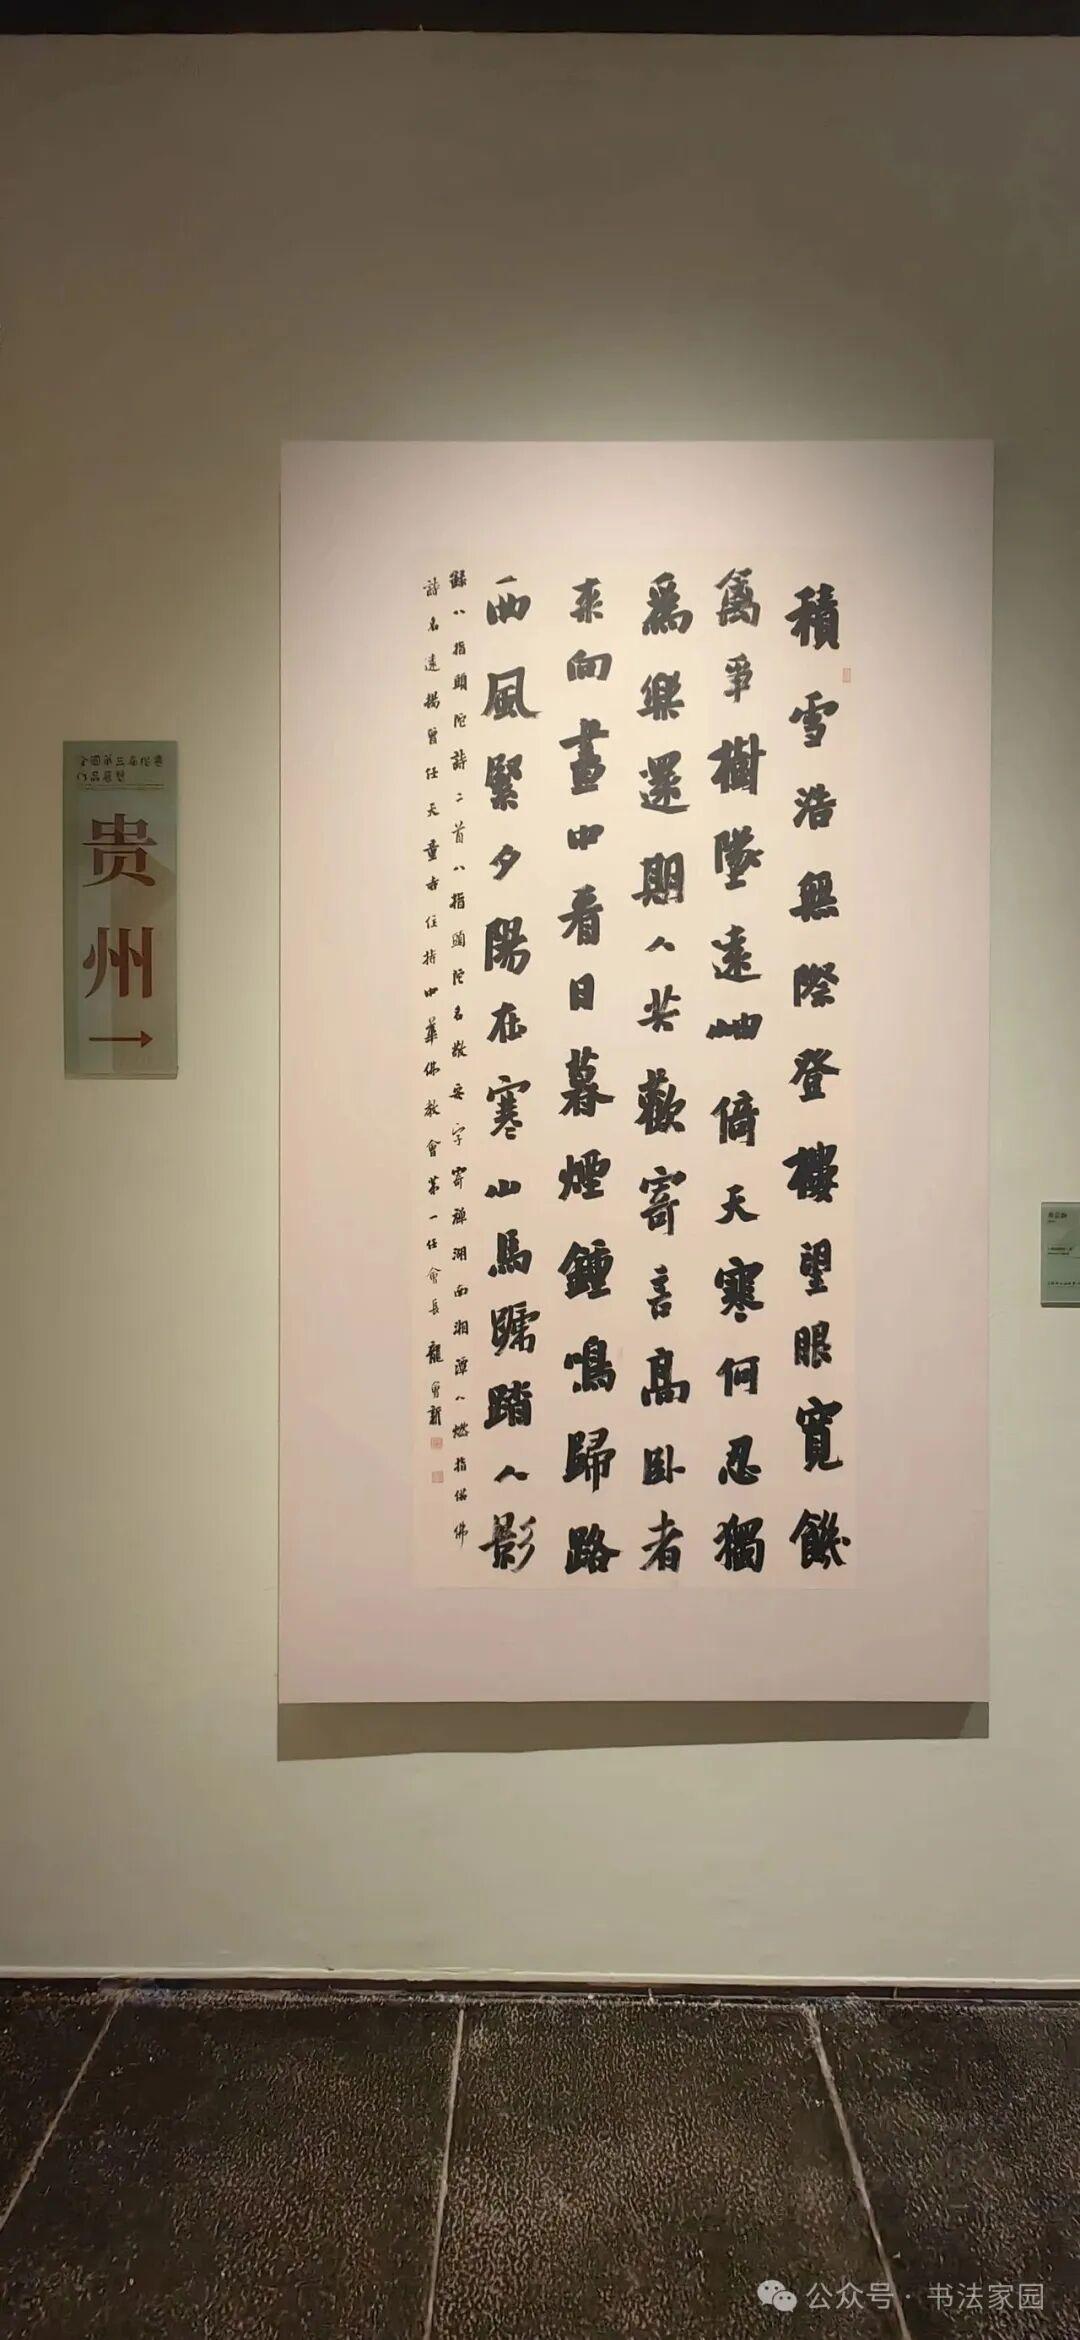 積雪浩無際登樓望眼寬饑
禽爭樹墜遠岫倚天寒何忍獨
為樂還期人共歡寄言高卧者
來向畫中看日暮煙鐘鳴歸路
西風緊夕陽在寒山馬蹄踏人影
錄八指頭陀詩二首八指頭陀名敬安字寄禪湖南湘潭人燃指供佛
詩名遠揚曾任天童寺住持中華佛教會第一任會長龍會新
贵州
公众号·书法家园